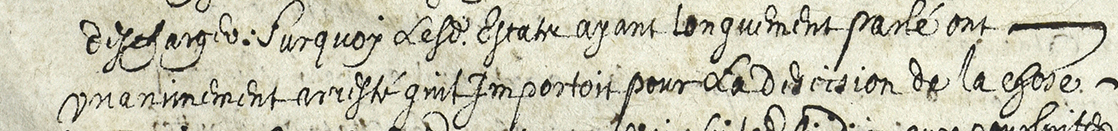 discharger. Surquoy Lesd. Estats ayant longuement parlé ont
unanimement arresté quil Importoit pour La Decision de la chose